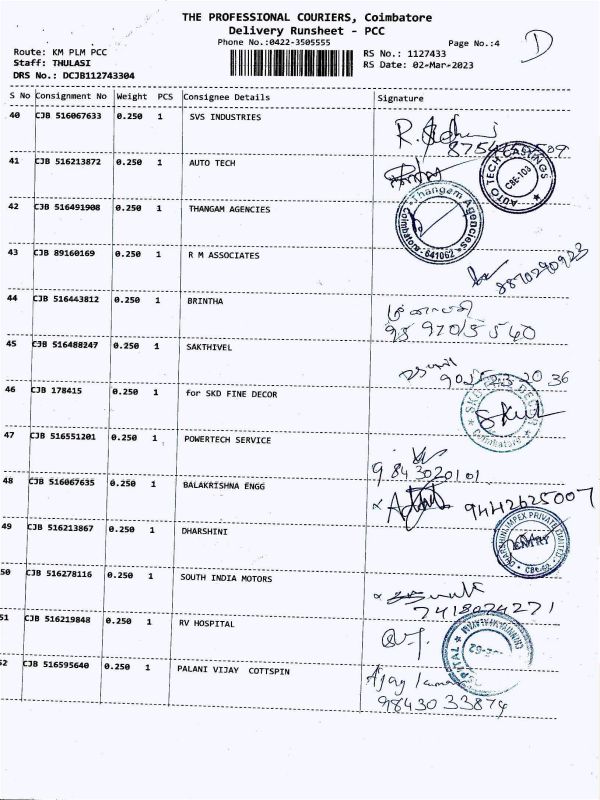 THE PROFESSIONAL COURIERS, Coimbatore
Delivery Runsheet - PCC
Phone No.:0422-3505555
Page No.:4
D
Route: KM PLM PCC
Staff: THULASI
DRS No.: DCJB112743304
RS No.: 1127433
RS Date: 02-Mar-2023
S No Consignment No Weight PCS Consignee Details Signature
40 CJB 516067633 0.250 1 SVS INDUSTRIES
41 CJB 516213872 0.250 1 AUTO TECH
AUTO TECH CASTINGS CBE-103
42 CJB 516491908 0.250 1 THANGAM AGENCIES
Thangam Agencies Coimbatore 641062
43 CJB 89160169 0.250 1 R M ASSOCIATES
8870290923
44 CJB 516443812 0.250 1 BRINTHA
45 CJB 516488247 0.250 1 SAKTHIVEL
46 CJB 178415 0.250 1 for SKD FINE DECOR
Coimbatore
47 CJB 516551201 0.250 1 POWERTECH SERVICE
9843020101
48 CJB 516067635 0.250 1 BALAKRISHNA ENGG
9442625007
49 CJB 516213867 0.250 1 DHARSHINI
DHARSHINI IMPEX PRIVATE LIMITED ENTRY CBE-62
50 CJB 516278116 0.250 1 SOUTH INDIA MOTORS
7418024271
51 CJB 516219848 0.250 1 RV HOSPITAL
52 CJB 516595640 0.250 1 PALANI VIJAY COTTSPIN
Ajay Kumar
9843033874